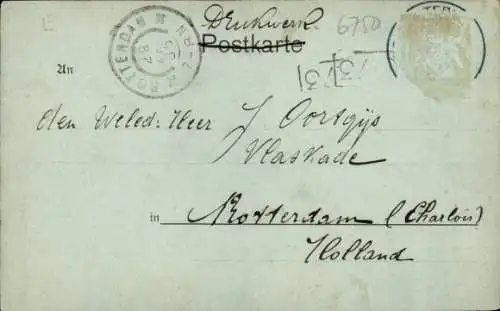 Drukwerk.
6750
Postkarte
ROTTERDAM
An
den Weled: Heer J Oortgijs
Vlaskade
in Rotterdam (Charlois)
Holland